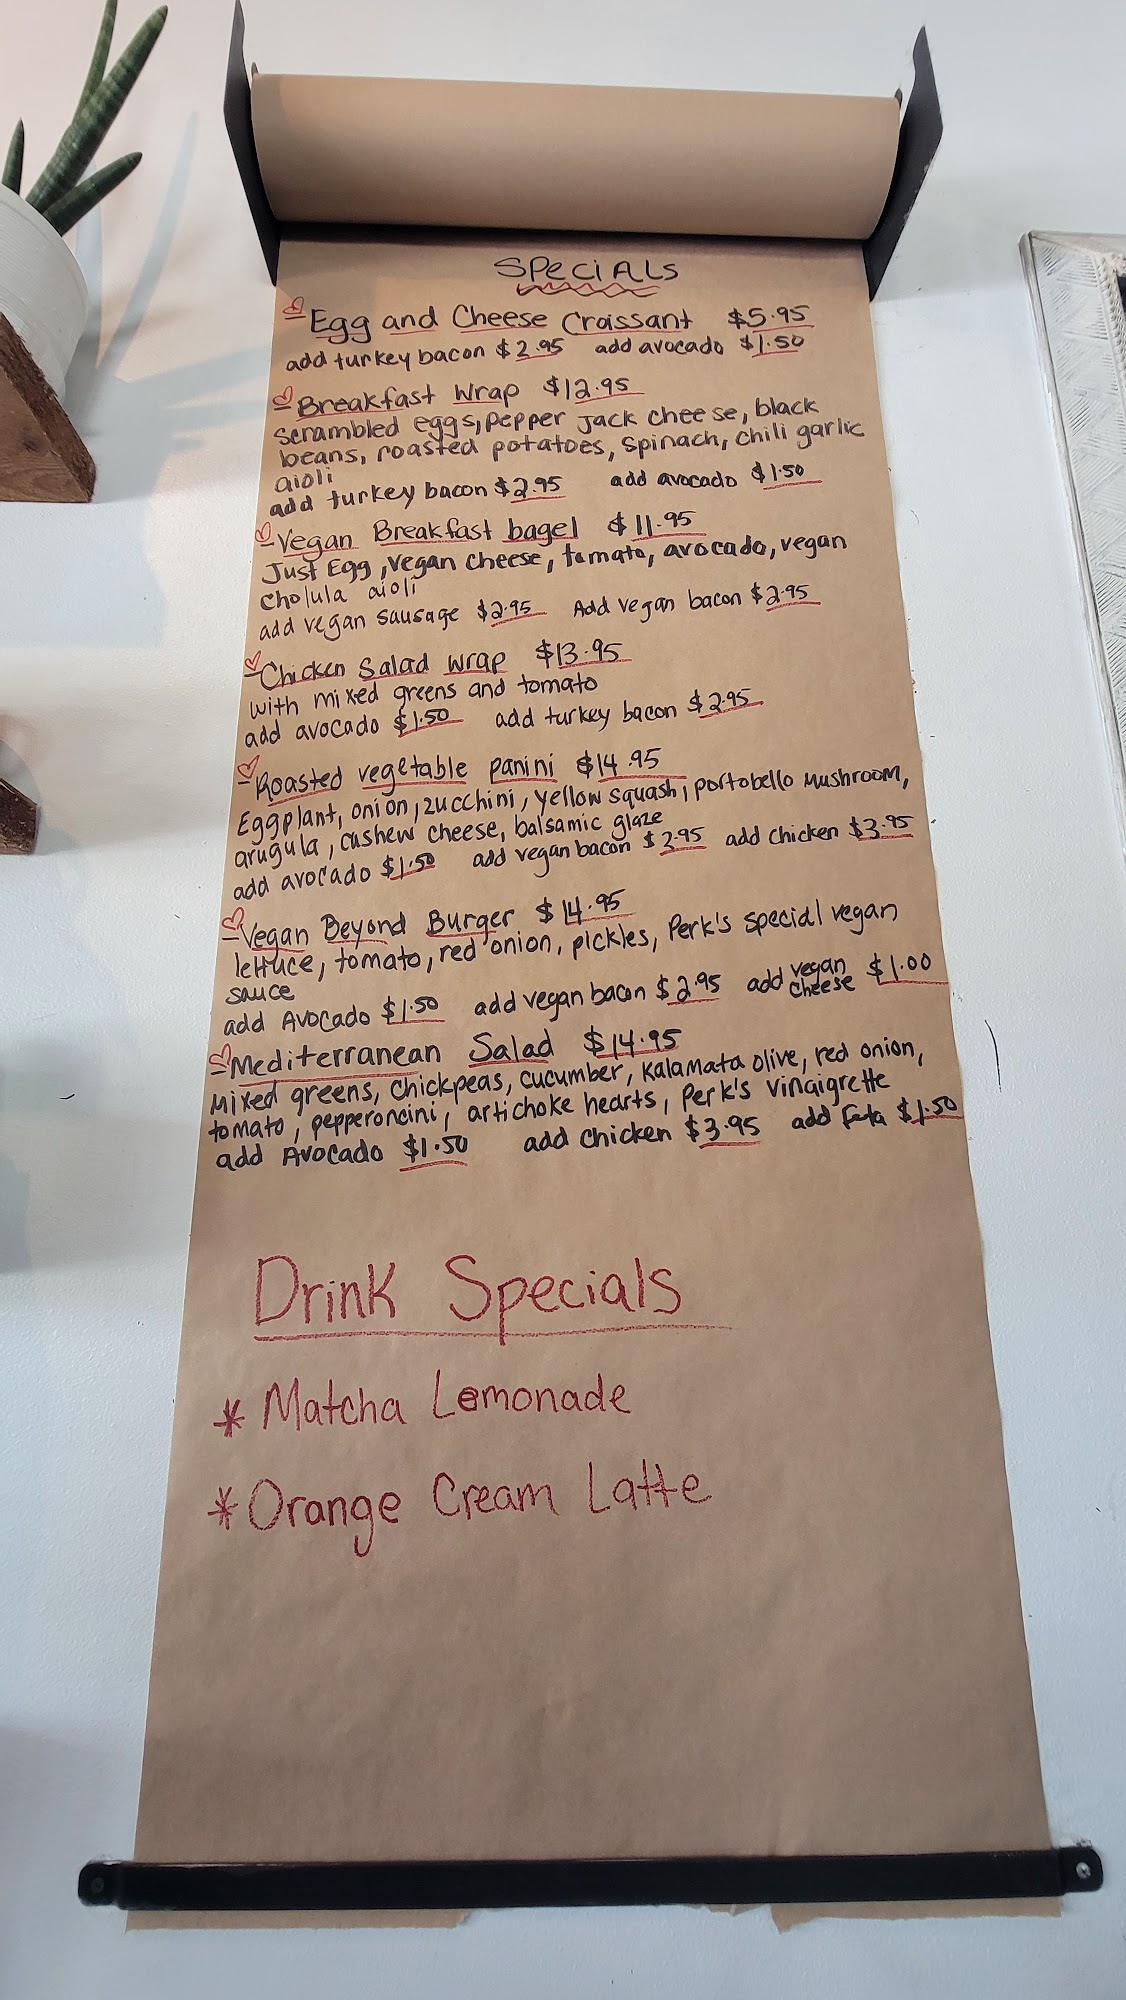 Specials
Egg and Cheese Croissant $5.95
add turkey bacon $2.95 add avocado $1.50
Breakfast Wrap $12.95
Scrambled eggs, pepper Jack cheese, black
beans, roasted potatoes, spinach, chili garlic
aioli
add turkey bacon $2.95 add avocado $1.50
Vegan Breakfast bagel $11.95
Just Egg, vegan cheese, tomato, avocado, vegan
cholula aioli
add vegan sausage $2.95 Add vegan bacon $2.95
Chicken Salad wrap $13.95
with mixed greens and tomato
add avocado $1.50 add turkey bacon $2.95
Roasted vegetable panini $14.95
Eggplant, onion, zucchini, yellow squash, portobello mushroom,
arugula, cashew cheese, balsamic glaze
add avocado $1.50 add vegan bacon $2.95 add chicken $3.95
Vegan Beyond Burger $14.95
lettuce, tomato, red onion, pickles, Perk's special vegan
sauce
add Avocado $1.50 add vegan bacon $2.95 add vegan cheese $1.00
Mediterranean Salad $14.95
Mixed greens, chickpeas, cucumber, kalamata olive, red onion,
tomato, pepperoncini, artichoke hearts, Perk's vinaigrette
add Avocado $1.50 add chicken $3.95 add feta $1.50
Drink Specials
* Matcha Lemonade
* Orange Cream Latte